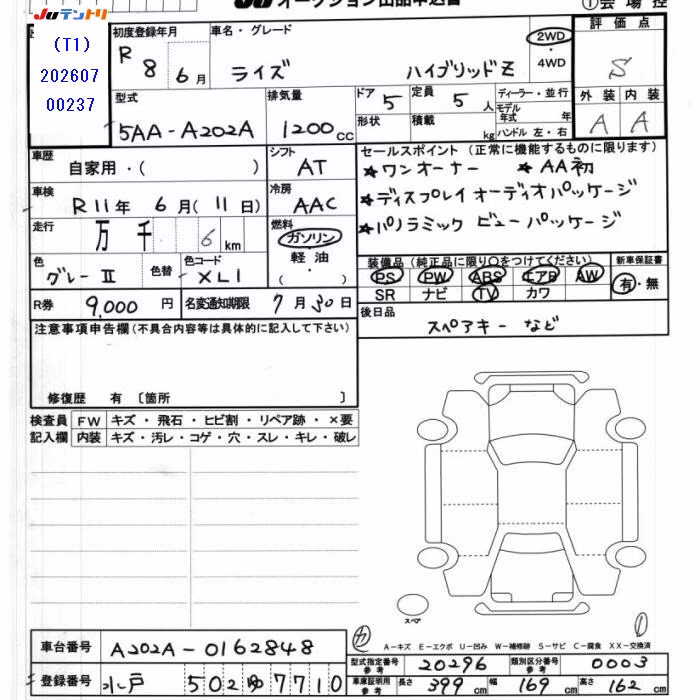 JUテントリ
(T1)
202607
00237
JU オークション出品申込書
①会場控
初度登録年月
R 8年 6月
車名・グレード
ライズ ハイブリッドZ
2WD
・
4WD
評価点
S
型式
5AA-A202A
排気量
1200cc
ドア 5
定員 5人
形状
積載 kg
ディーラー・並行
モデル年式 年
ハンドル 左・右
外装 内装
A A
車歴
自家用・( )
シフト
AT
車検
R11年 6月(11日)
冷房
AAC
走行
万 千 6 km
燃料
ガソリン
・
軽油
( )
色
グレーⅡ
色替
色コード
XL1
R券 9,000円
名変通知期限 7月30日
セールスポイント(正常に機能するものに限ります)
★ワンオーナー ★AA初
★ディスプレイオーディオパッケージ
★パノラミックビューパッケージ
装備品(純正品に限り○をつけてください)
新車保証書
PS PW ABS エアB AW
SR ナビ TV カワ
有・無
後日品
スペアキーなど
注意事項申告欄(不具合内容等は具体的に記入して下さい)
修復歴 有〔箇所 〕
検査員 FW キズ・飛石・ヒビ割・リペア跡・×要
記入欄 内装 キズ・汚レ・コゲ・穴・スレ・キレ・破レ
スペア
A-キズ E-エクボ U-凹み W-補修跡 S-サビ C-腐食 XX-交換済
車台番号 A202A-0162848
登録番号 水戸 502 ゆ 7710
型式指定番号 参考 20296
類別区分番号 参考 0003
車庫証明用 参考 長さ 399cm 幅 169cm 高さ 162cm